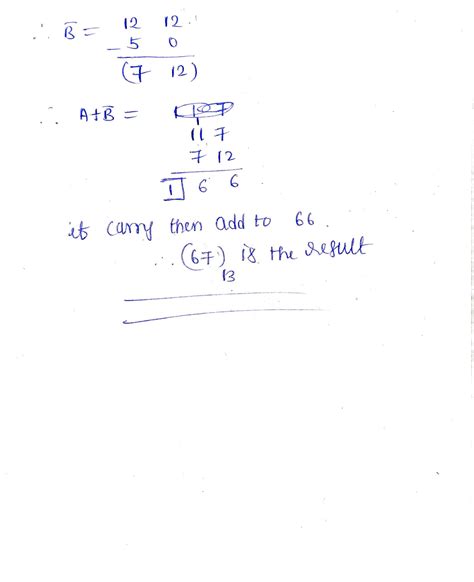 ∴ B̅ = 12 12
- 5 0
(7 12)
∴ A+B̅ =
1
11 7
7 12
1 6 6
if carry then add to 66.
∴ (67)₁₃ is the result